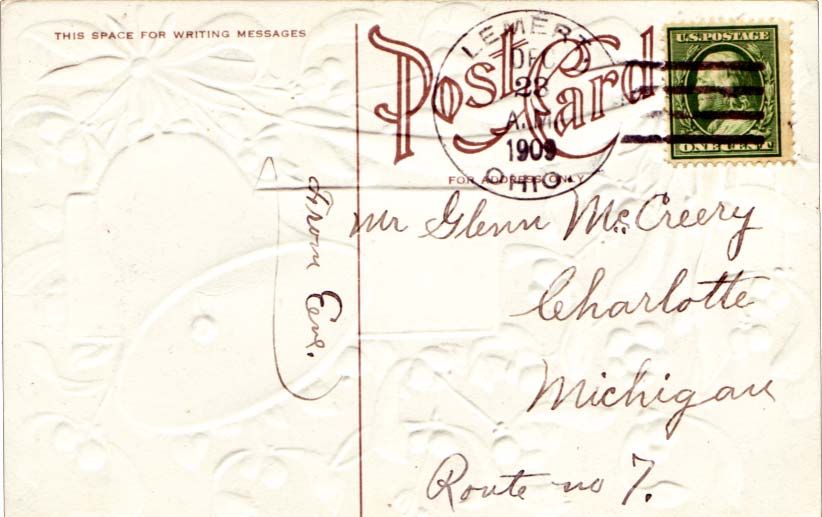 THIS SPACE FOR WRITING MESSAGES
Post Card
FOR ADDRESS ONLY
LEMERT
DEC
28
A.M.
1909
OHIO.
U.S. POSTAGE
ONE CENT
From Eve.
Mr Glenn McCreery
Charlotte
Michigan
Route no 7.